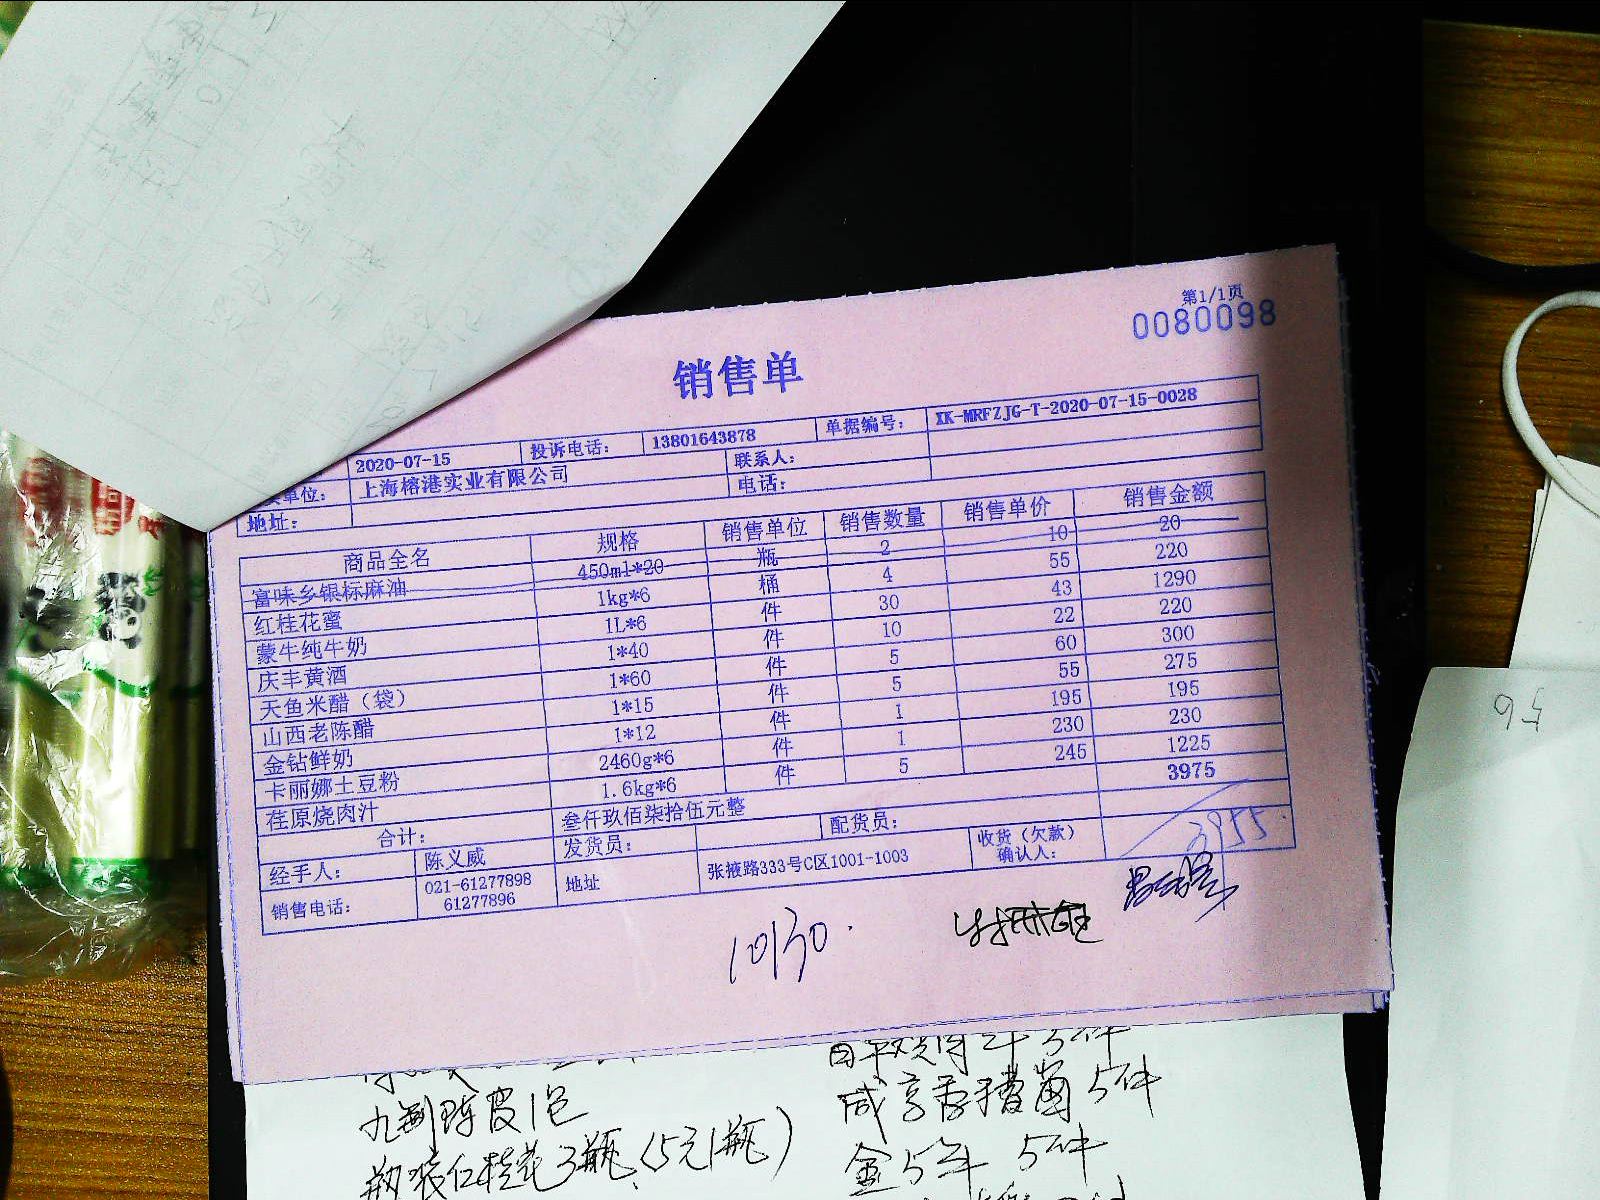 第1/1页
0080098
销售单
2020-07-15 投诉电话: 13801643878 单据编号: XK-MRFZJG-T-2020-07-15-0028
单位: 上海榕港实业有限公司 联系人:
地址: 电话:
商品全名 规格 销售单位 销售数量 销售单价 销售金额
富味乡银标麻油 450ml*20 瓶 2 10 20
红桂花蜜 1kg*6 桶 4 55 220
蒙牛纯牛奶 1L*6 件 30 43 1290
庆丰黄酒 1*40 件 10 22 220
天鱼米醋（袋） 1*60 件 5 60 300
山西老陈醋 1*15 件 5 55 275
金钻鲜奶 1*12 件 1 195 195
卡丽娜土豆粉 2460g*6 件 1 230 230
荏原烧肉汁 1.6kg*6 件 5 245 1225
合计: 叁仟玖佰柒拾伍元整 3975
经手人: 陈义威 发货员: 配货员: 收货（欠款）确认人: 3955
销售电话: 021-61277898 61277896 地址 张掖路333号C区1001-1003
10130.
九制陈皮1包
瓶装红桂花3瓶(5元1瓶)
咸亨香糟卤5件
金5年 5件